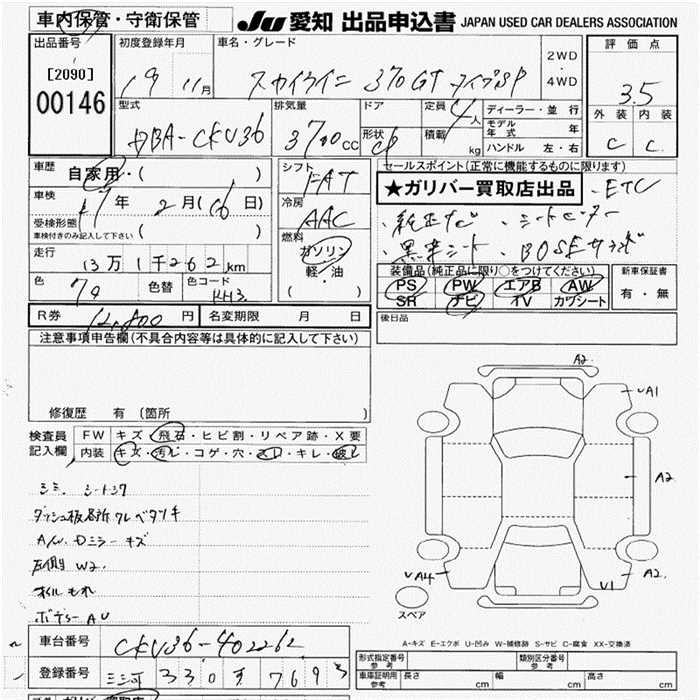 車内保管・守衛保管
JU 愛知 出品申込書 JAPAN USED CAR DEALERS ASSOCIATION
出品番号 初度登録年月 車名・グレード 2WD・4WD 評価点
[2090] 19 11月 スカイライン 370GT タイプSP 3.5
00146
型式 排気量 ドア 定員 ディーラー・並行 外装 内装
DBA-CKV36 3700cc 形状 CP 4人 積載 kg モデル年式 年 C C
ハンドル 左・右
車歴 自家用・( ) シフト FAT セールスポイント(正常に機能するものに限ります)
★ガリバー買取店出品 ・ETC
車検 17年 2月(16日) 冷房 AAC
・純正ナビ ・シートヒーター
受検形態 車検付きのみ記入して下さい ( ) 燃料 ガソリン・軽・油 ( )
・黒革シート ・BOSEサウンド
走行 13万1千262km
装備品(純正品に限り○をつけてください) 新車保証書
PS PW エアB AW 有・無
SR ナビ TV カワシート
色 色替 色コード KH3
R券 12,800円 名変期限 月 日
後日品
注意事項申告欄(不具合内容等は具体的に記入して下さい)
修復歴 有 (箇所 )
検査員記入欄 FW キズ・飛石・ヒビ割・リペア跡・X要
内装 キズ・汚れ・コゲ・穴・スレ・キレ・破れ
シミ シートスワ
ダッシュ板各所ワレベタツキ
A/W, Dミラーキズ
左側 W2.
オイルもれ
ボデーAU
A2
UA1
A2
UA4
U1
A2
スペア
A-キズ E-エクボ U-凹み W-補修跡 S-サビ C-腐食 XX-交換済
車台番号 CKV36-402262
形式指定番号 参考 類別区分番号 参考
登録番号 330 7693
車庫証明用 参考 長さ cm 幅 cm 高さ cm